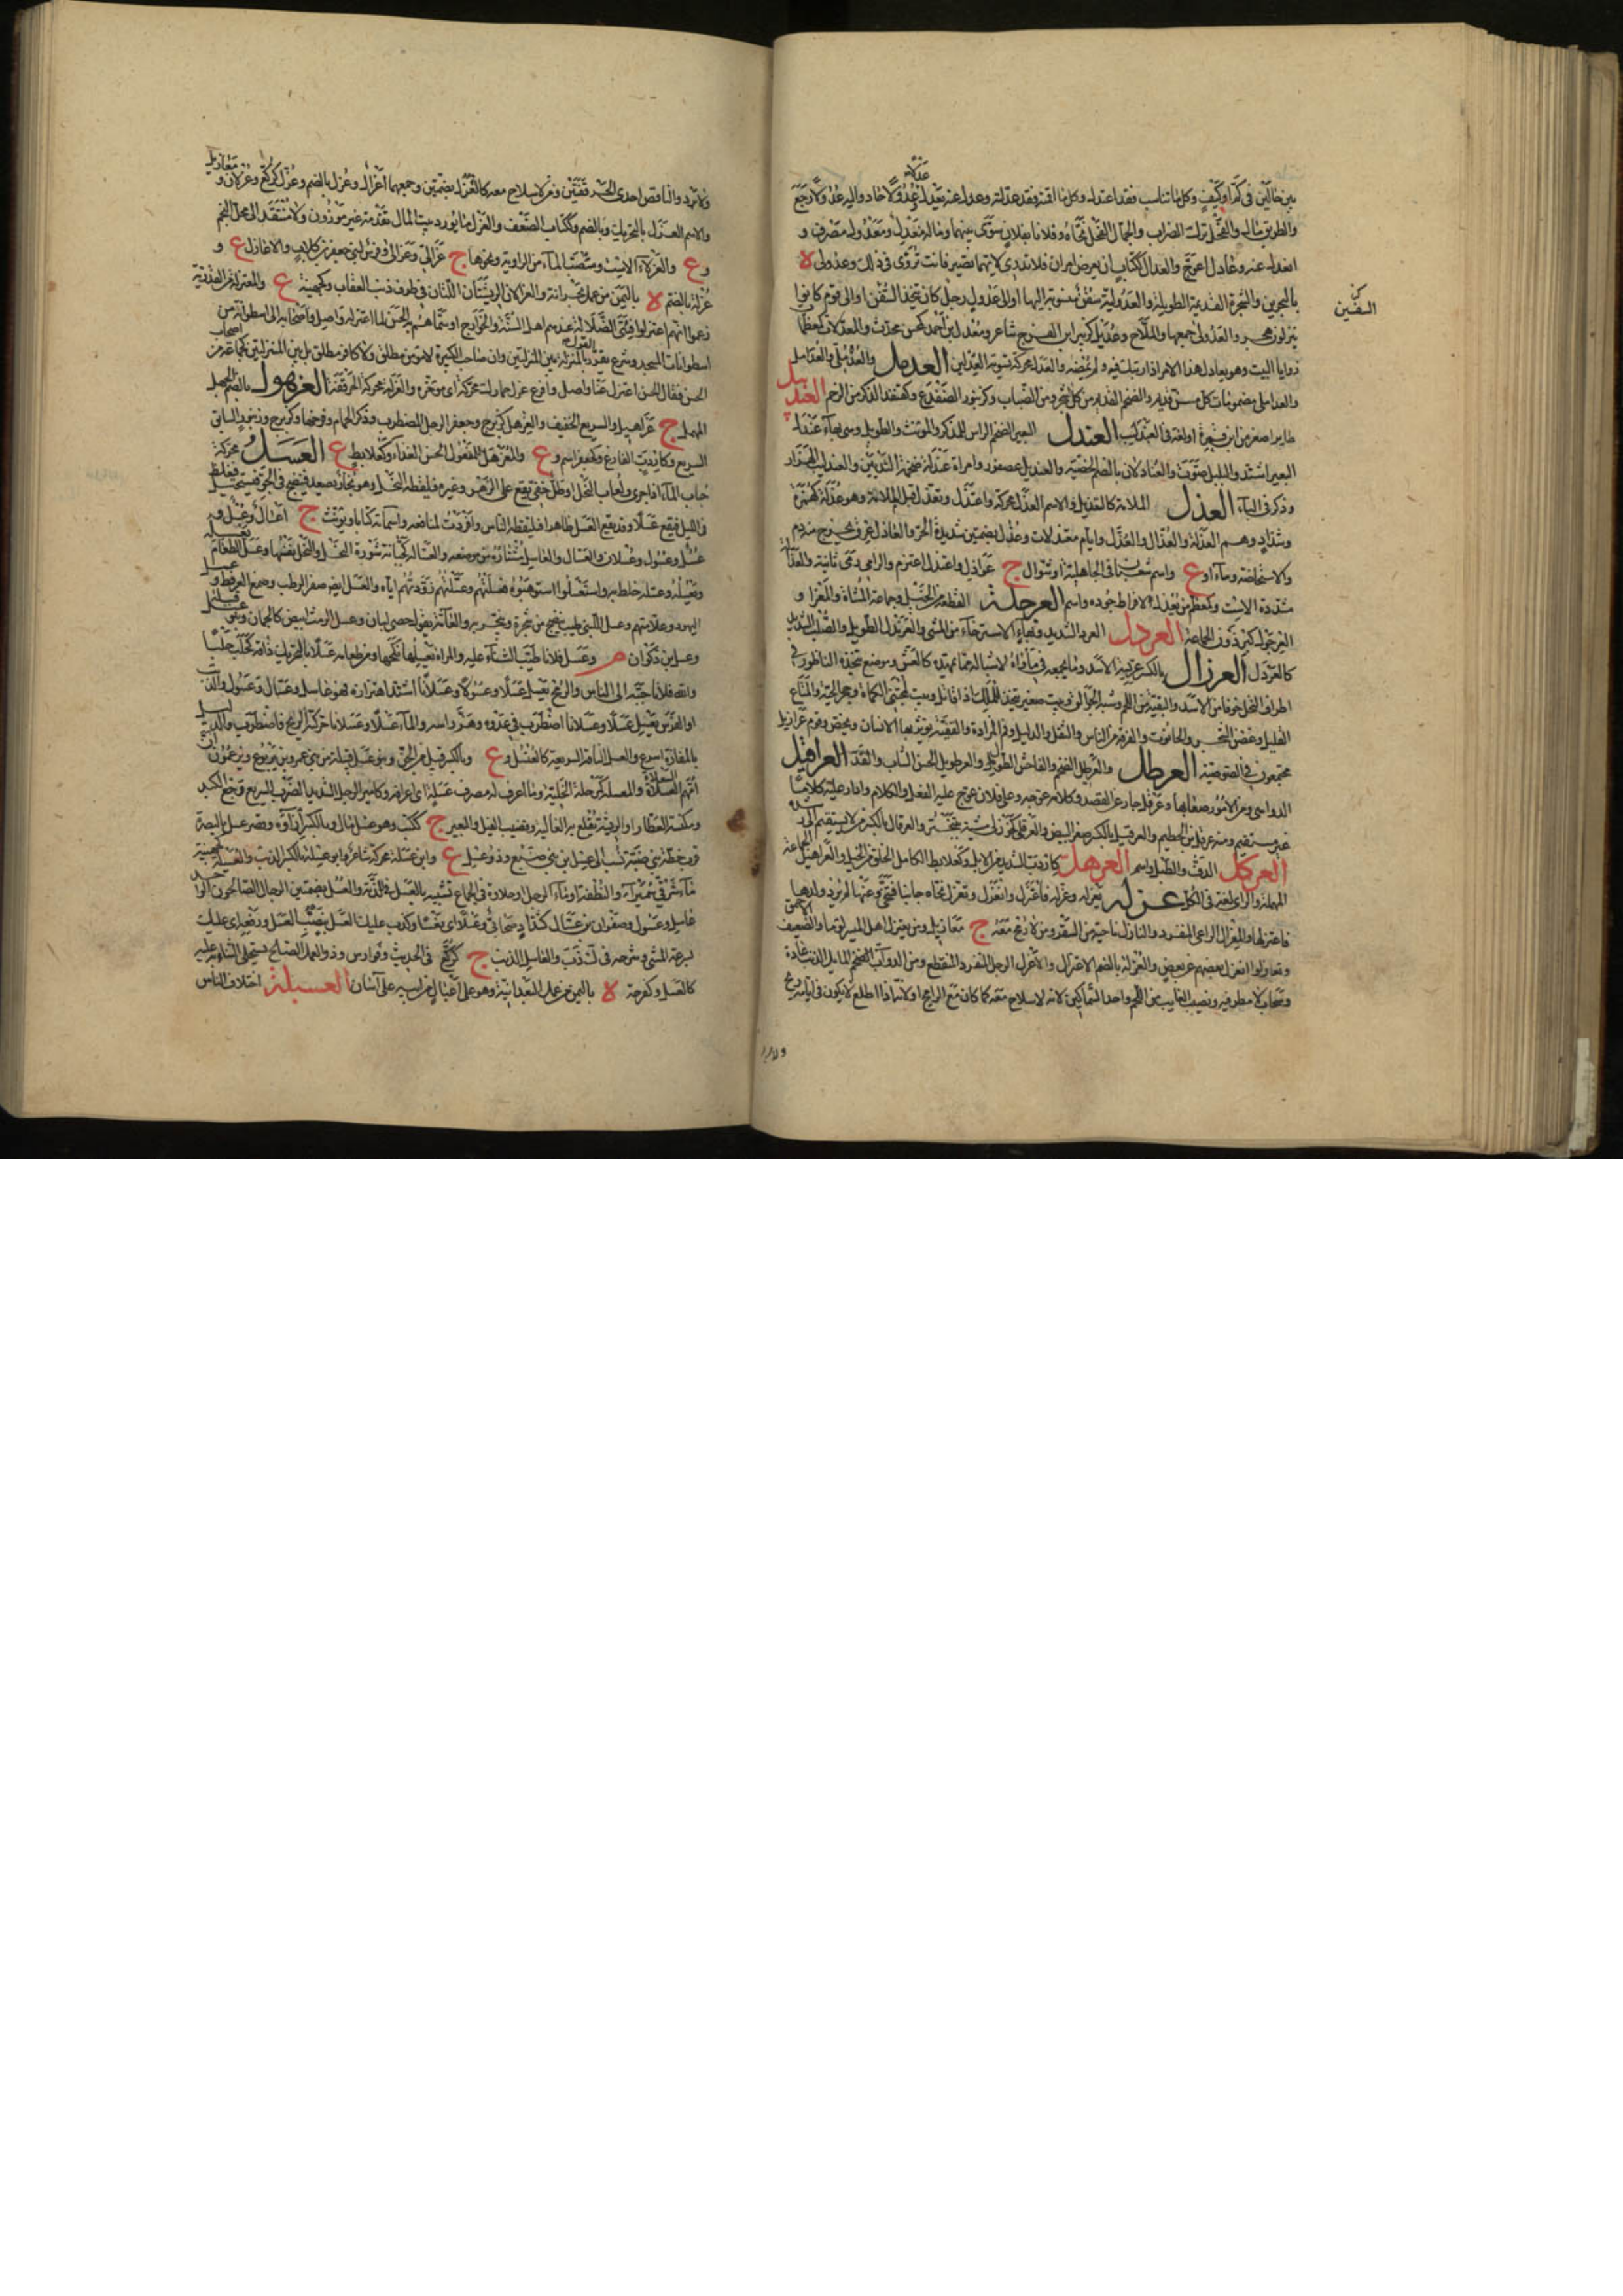 بين حالين في كم او كيف وكل ما تناسب فقد اعتدل وكل ما اقمته فقد عدلته وعدل عنه يعدل عدلا وعدولا حاد واليه عدولا رجع
عدلا
والطريق مال والفحل ترك الضراب والجمال الفحل نحاه وفلانا بفلان سوى بينهما وماله معدل ولا معدول مصرف و
انعدل عنه وعادل اعوج والعدال ككتاب ان يعرض امران فلا تدري لايهما تصير فانت تروى في ذلك وعدولى ة
بالبحرين والشجرة القديمة الطويلة والعدولية سفن منسوبة اليها او الى عدول رجل كان يتخذ السفن او الى قوم كانوا
كن السفين
ينزلون هجر والعدولي جمعها والملاح وعديل كزبير ابن الفرخ شاعر ومعدل بن احمد كمحسن محدث والمعدلات كمعظمات
زوايا البيت وهو يعادل هذا الامر اذا ارتبك فيه ولم يمضه والعدل محركة تسوية العدلين العدمل والعدملي والعدامل
والعداملي مضمومات كل مسن قديم والضخم القديم من كل شجر ومن الضباب وكزنبور الضفدع وكقنفذ الذكر من الرخم العندبيل
طاير اصغر من ابن تمرة او لغة في العندليب العندل البعير الضخم الراس للمذكر والمونث والطويل وهي بهاء عندل
البعير اشتد والبلبل صوت والعنادلان بالضم الخصية والعنديل عصفور وامراة عندلة ضخمة الثديين والعندليب الهزار
وذكر في الباء العذل الملامة كالتعذيل والاسم العذل محركة واعتذل وتعذل قبل الملامة وهو عذلة كهمزة
وشداد وهم العذلة والعذال والعذل وايام معتذلات وعذل بضمتين شديدة الحر والعاذل عرق يخرج منه دم
الاستحاضة وماء او ع واسم شعبان في الجاهلية او شوال ج عواذل واعتذل اعتزم والرامي رمى ثانية والعذالة
مشددة الاست وكمعظم من يعذل لافراط جوده واسم العرجلة القطعة من الخيل وجماعة المشاة والمعزا و
العرجول كبرذون الجماعة العردل العرد الشديد وبهاء الاسترخاء من المشي والعرندل الطويل والصلب الشديد
كالعردل العرزال بالكسر عريسة الاسد وما يجمعه في ماواه لاشباله مما يمهده كالعش وموضع يتخذه الناطور في
اطراف النخل خوفا من الاسد والبقية من اللحم وشبه الجوالق وبيت صغير يتخذ للملك اذا قاتل وبيت لمجتني الكماة وجحر الحية والمتاع
القليل وغصن الشجر والحانوت والفرقة من الناس والثقل والدليل وفم المزادة والبقية يويثها الانسان وبخص وقوم عرازيل
مجتمعون في لصوصية العرطل والعرطل الضخم والفاحش الطويل والعرطويل الحسن الشاب والقد العراقيل
الدواهي ومن الامور صعابها وعرقل جار عن القصد وكلامه عوجه وعلى فلان عوج عليه الفعل والكلام وادار عليه كلاما
غير مستقيم ومنه عرقل بن الخطيم والعرقيل بالكسر صفرة البيض والعرقلى كخوزلى مشية بتبختر والعرقال بالكسر من لا يستقيم الى
العركل الدف والطبل واسم العرهل كاردب الشديد من الابل وكعلابط الكامل الخلق من الخيل والعراهيل الجماعة
المهملة والزاي لغة في الكل عزله يعزله وعزله فاعتزل وانعزل وتعزل نحاه جانبا فتنحى وعنها لم يرد ولدها
فاعتزلها والمعزال الراعي المنفرد والنازل ناحية من السفر ومن لا رمح معه ج معازيل ومن يعتزل اهل الميسر لوما والضعيف
وتعازلوا انعزل بعضهم عن بعض والعزلة بالضم الاعتزال والاعزل الرجل المنفرد المنقطع ومن الدواب الضخم المايل الذنب عادة
وسحاب لا مطر فيه ونصيب الغايب من اللحم واحد السماكين لانه لا سلاح معه كما كان مع الرامح او لانه اذا طلع لا يكون في ايامه ريح
ولا برد
ولا برد والناقص احدى الحرقفتين ومن لا سلاح معه كالعزل بضمتين وجمعهما اعزال وعزل بالضم وعزل كركع وعزلان و
معازيل
والاسم العزل بالتحريك وبالضم وككتاب الضعف والعزل ما يورد بيت المال تقدمة غير موزون ولا منتقد الى محل النجم
و ع والعزلاء الاست ومصب الماء من الراوية ونحوها ج عزالى وعزالي وفرس لبني جعفر بن كلاب والاعازل ع و
عزلة بالضم ة باليمن من عمل بحرانة والعزالان الريشتان اللتان في طرف ذنب العقاب وكجهينة ع والمعتزلة من القدرية
زعموا انهم اعتزلوا فئتي الضلالة عندهم اهل السنة والخوارج او سماهم به الحسن لما اعتزله واصل واصحابه الى اسطوانة من
اسطوانات المسجد وشرع يقرر القول بالمنزلة بين المنزلتين وان صاحب الكبيرة لا مومن مطلق ولا كافر مطلق بل بين المنزلتين كجماعة من اصحاب
الحسن فقال الحسن اعتزل عنا واصل وافرع عزل حمارك محركة اي موخره والعزلة محركة الحرقفة العزهول بالضم الجمل
المهمل ج عزاهيل والسريع الخفيف والعزهل كزبرج وجعفر الرجل المضطرب وذكر الحمام وفرخها وكزبرج وزنبور السابق
السريع وكاردب الفارغ وكجعفر اسم و ع والمعزهل للمفعول الحسن الغذاء وكعلابط ع العسل محركة
حباب الماء اذا جرى ولعاب النحل او طل خفي يقع على الزهر وغيره فيلقطه النحل وهو بخار يصعد فينضج في الجو فيستحيل فيغلظ
في الليل فيقع عسلا وقد يقع العسل ظاهرا فيلقطه الناس وافردت لمنافعه واسمائه كتابا ويونث ج اعسال وعسل و
عسل وعسول وعسلان والعسال والعاسل مشتاره من موضعه والعسالة كجبانة شورة النحل والنحل نفسها وعسل الطعام
ويعسله وعسله خلطه به واستعسلوا استوهبوه فعسلتهم وعسلتهم زودتهم اياه والعسل ايضا صقر الرطب وصمغ العرفط و
اليهود علامتهم وعسل اللبنى طيب ينضج من شجرة ويتبخر به والعامة تقول حصى لبان وعسل الرمث ابيض كالجمان وبنو عسل قبيلة
وعسل بن ذكوان م وعسل فلانا طيب الثناء عليه والمراة يعسلها نكحها ومن طعامه عسلا بالتحريك ذاقه كحلب حلبا
والله فلانا حببه الى الناس والرمح يعسل عسلا وعسولا وعسلانا اشتد اهتزازه فهو عاسل وعسال وعسول والذئب
او الفرس يعسل عسلا وعسلانا اضطرب في عدوه وهز راسه والماء عسلا وعسلانا حركته الريح فاضطرب والدليل
بالمفازة اسرع والعسل الناقة السريعة كالعنسل و ع وبالكسر قبيلة من الجن وبنو عسل قبيلة من بني عمرو بن يربوع ويزعمون ان
امهم السعلاة والمعسلة كمرحلة الخلية وما اعرف له مضرب عسلة اي اعراقه وكامير الرجل الشديد الضرب السريع رجع اليد
ومكنسة العطار او الريشة تقلع بها الغالية وقضيب الفيل والبعير ج ككتب وهو عسل مال وبالكسر ازاؤه وقصر عسل بالبصرة
قرب خطة بني ضبة نسب الى عسل ابن بني صبيع وذو عسل ع وابن عسلة محركة شاعر وابو عسلة بالكسر الذئب والعسيلة كجهينة
ماءة شرقي سميراء والنطفة او ماء الرجل او حلاوة في الجماع تشبيه بالعسل في لذته والعسل بضمتين الرجال الصالحون الواحد
عاسل وعسول وصفوان بن عسال كشداد صحابي وعسلا اي تعسا وكذب عليك العسل بنصب العسل ورفعه اي عليك
بسرعة المشي وشرحه في ك ذ ب والعاسل الذئب ج كركع في الحديث وفوارس وذو العمل الصالح يستحلى الثناء عليه
كالعسل وكفرحة ة باليمن من عمل البعدانية وهو على اعسال من ابيه على آسان العسبلة اختلاف الناس